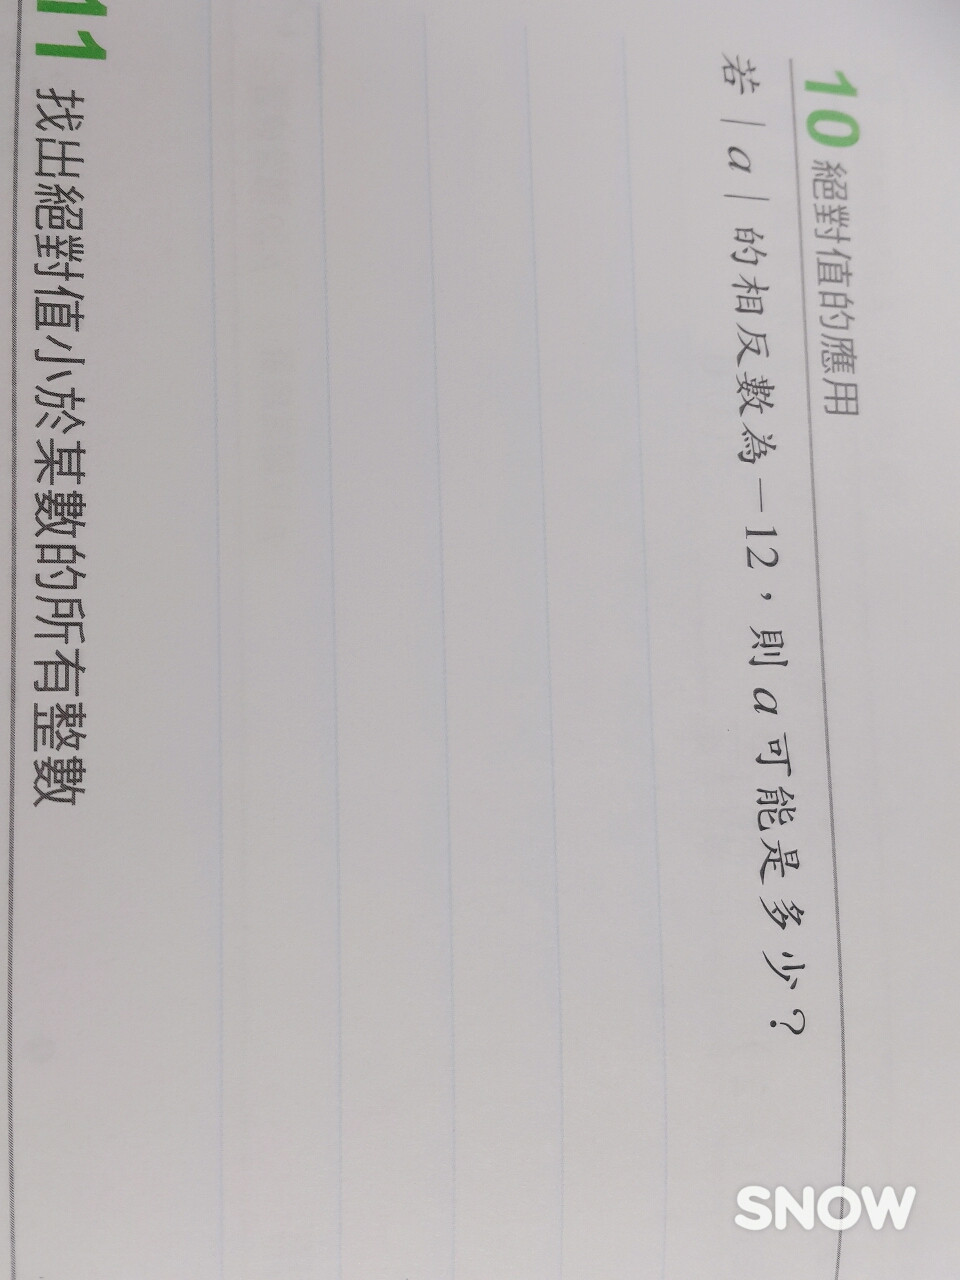 10 絕對值的應用
若｜a｜的相反數為－12，則a可能是多少？
11 找出絕對值小於某數的所有整數
SNOW